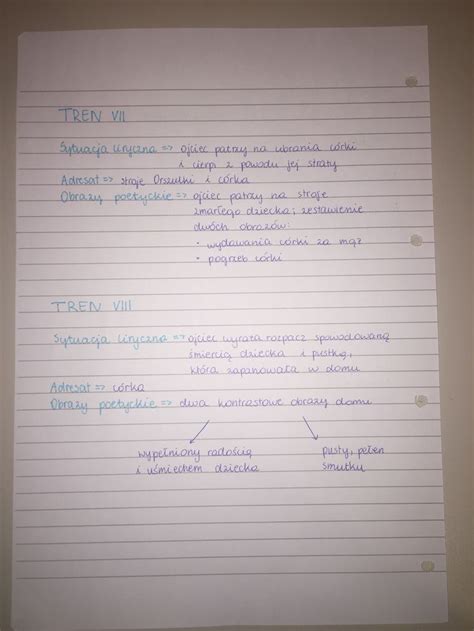 TREN VII
Sytuacja liryczna => ojciec patrzy na ubrania córki
i cierpi z powodu jej straty
Adresat => stroje Orszulki i córka
Obrazy poetyckie => ojciec patrzy na stroje
zmarłego dziecka; zestawienie
dwóch obrazów:
• wydawania córki za mąż
• pogrzeb córki
TREN VIII
Sytuacja liryczna => ojciec wyraża rozpacz spowodowaną
śmiercią dziecka i pustką,
która zapanowała w domu
Adresat => córka
Obrazy poetyckie => dwa kontrastowe obrazy domu
wypełniony radością pusty, pełen
i uśmiechem dziecka smutku